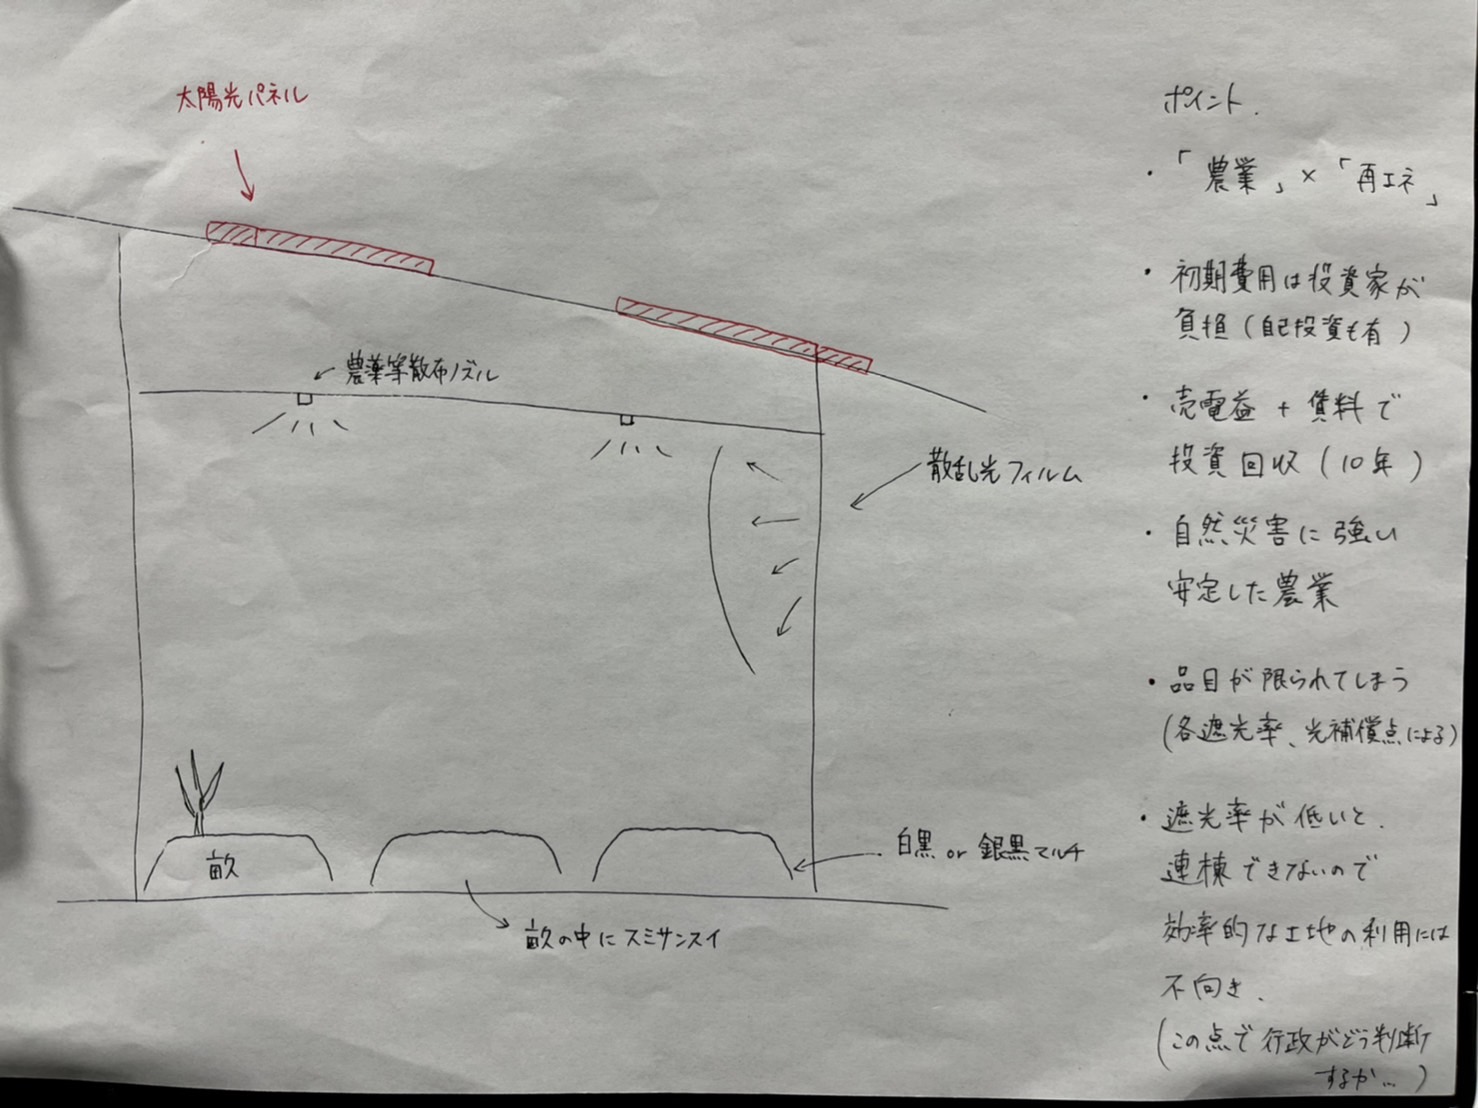 太陽光パネル
農薬等散布ノズル
散乱光フィルム
畝
白黒 or 銀黒マルチ
畝の中にスミサンスイ
ポイント.
・「農業」×「再エネ」
・初期費用は投資家が
負担(自己投資も有)
・売電益 + 賃料で
投資回収(10年)
・自然災害に強い
安定した農業
・品目が限られてしまう
(各遮光率、光補償点による)
・遮光率が低いと、
連棟できないので
効率的な土地の利用には
不向き.
(この点で行政がどう判断
するか…)